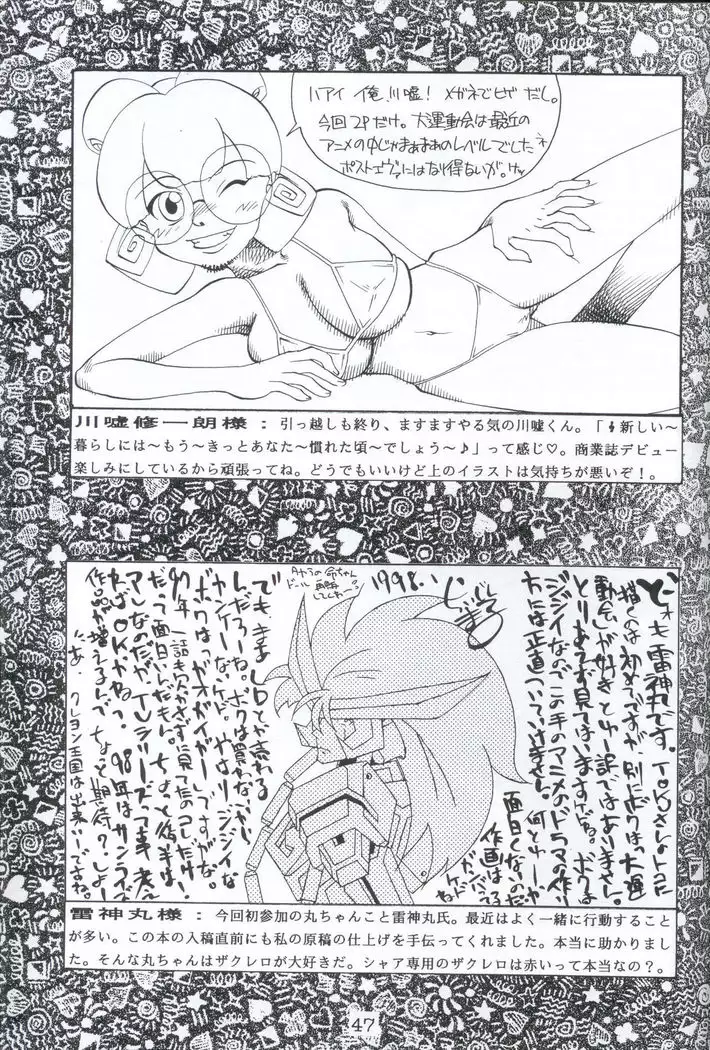 ハアイ 俺、川嘘! メガネでヒゲ だし。
今回2Pだけ。大運動会は最近の
アニメの中じゃまあまあのレベルでしたネ
ポストエヴァにはなり得ないが。ケッ
川嘘修一朗様:引っ越しも終り、ますますやる気の川嘘くん。「𝄽新しい〜
暮らしには〜もう〜きっとあなた〜慣れた頃〜でしょう〜♪」って感じ♡。商業誌デビュー
楽しみにしているから頑張ってね。どうでもいいけど上のイラストは気持ちが悪いぞ!。
ど〜も雷神丸です。TOKUさんのトコに
描くのは初めてですが、別にボクは大運
動会が好きとゆー訳ではありません。
とりあえず見てはいますけどね。ボクは
ジジイなのでこの手のアニメのドラマの作り
方には正直ついていけません。何とゆーか
面白くないのだ
作画は
がんばってる
けど
1998.1
でもまあLDとか売れる
んだろーね。ボクは買わないから
カンケーないケド。やはりジジイな
ボクはガオガイガーですかな。
97年、一話も欠かさずに見てたのコレだけ!
だって面白いんだもん。ちょっと後半は
アレなのだが、TVシリーズって事考え
ればOKかねっ。98年はサンライズ
作品が増えるんで、ちょっと期待?しよー
にあ、クレヨン王国は出来いーですね。
雷神丸様:今回初参加の丸ちゃんこと雷神丸氏。最近はよく一緒に行動すること
が多い。この本の入稿直前にも私の原稿の仕上げを手伝ってくれました。本当に助かりまし
た。そんな丸ちゃんはザクレロが大好きだ。シャア専用のザクレロは赤いって本当なの?。
47